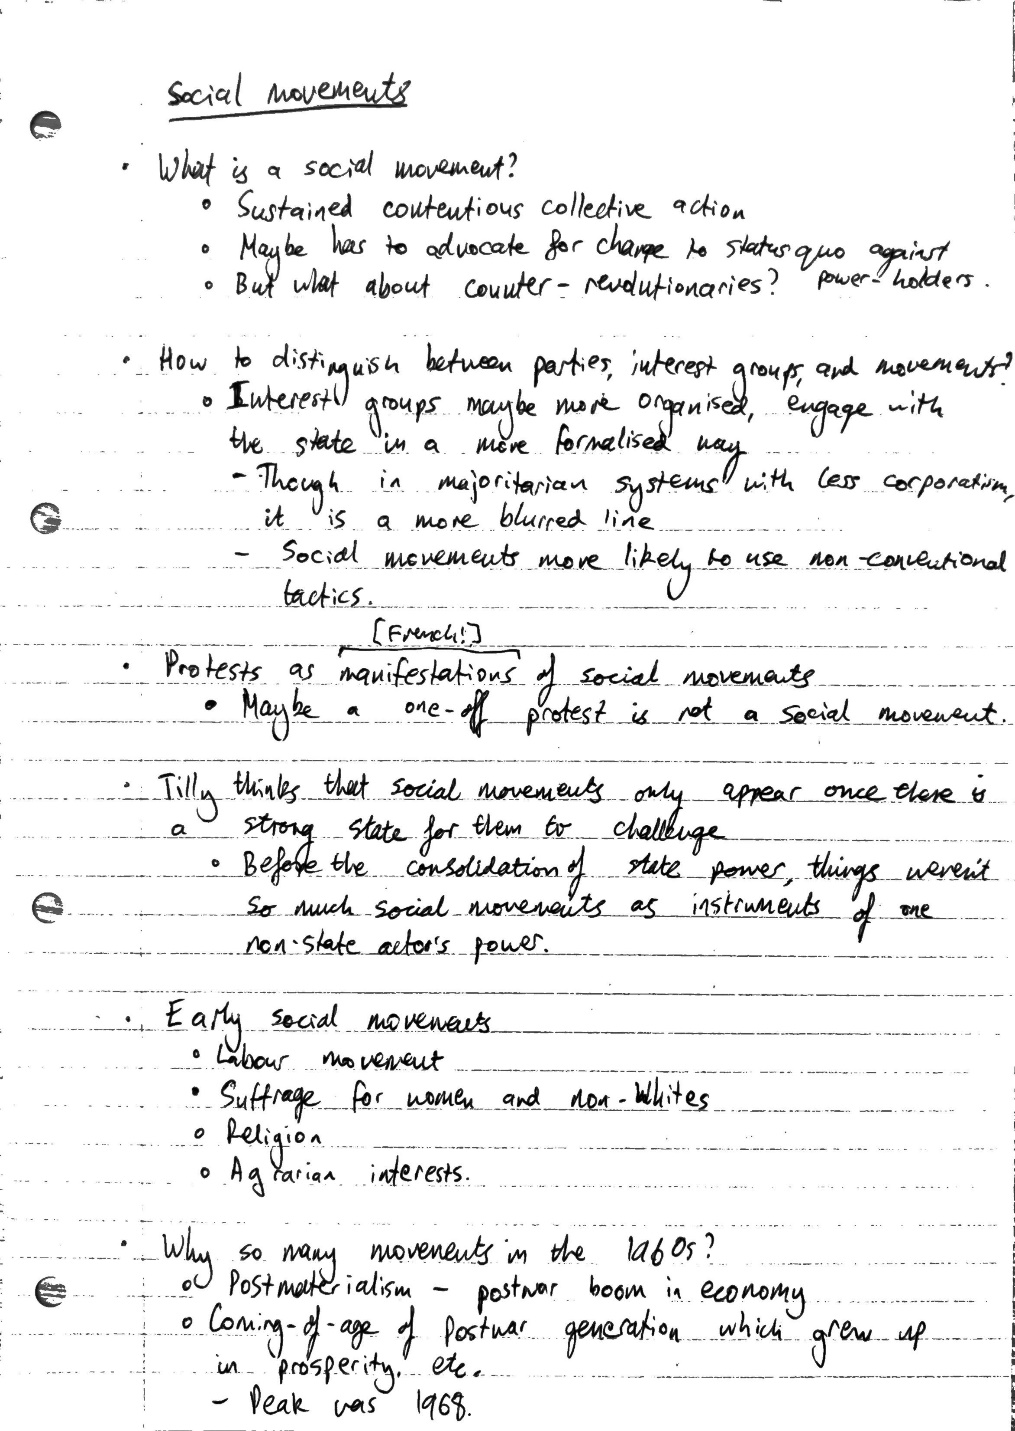 Social movements
• What is a social movement?
◦ Sustained contentious collective action
◦ Maybe has to advocate for change to status quo against
power-holders.
◦ But what about counter-revolutionaries?
• How to distinguish between parties, interest groups, and movements?
◦ Interest groups maybe more organised, engage with
the state in a more formalised way
- Though in majoritarian systems with less corporatism,
it is a more blurred line
- Social movements more likely to use non-conventional
tactics.
[French!]
• Protests as manifestations of social movements
• Maybe a one-off protest is not a social movement.
• Tilly thinks that social movements only appear once there is
a strong state for them to challenge
◦ Before the consolidation of state power, things weren't
so much social movements as instruments of one
non-state actor's power.
• Early social movements
• Labour movement
• Suffrage for women and non-Whites
◦ Religion
◦ Agrarian interests.
• Why so many movements in the 1960s?
◦ Postmaterialism - postwar boom in economy
◦ Coming-of-age of postwar generation which grew up
in prosperity, etc.
- Peak was 1968.